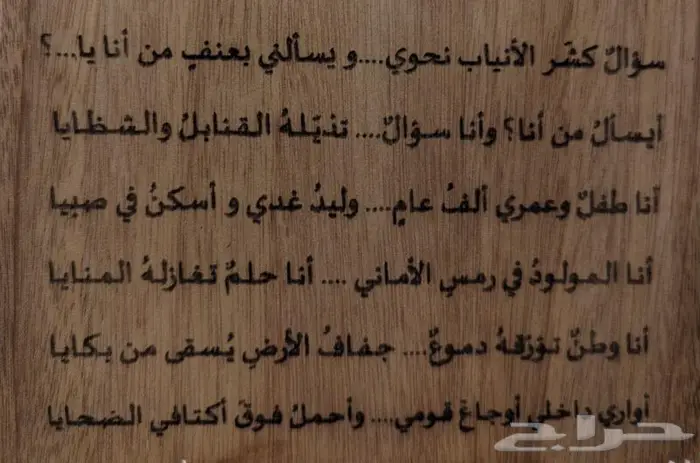 سؤالٌ كشَر الأنياب نحوي....و يسألني بعنفٍ من أنا يا...؟
أيسألُ من أنا؟ وأنا سؤالٌ.... تذيّلهُ القنابلُ والشظايا
أنا طفلٌ وعمري ألفُ عامٍ.... وليدُ غدي و أسكنُ في صبيا
أنا المولودُ في رمسِ الأماني .... أنا حلمٌ تغازلهُ المنايا
أنا وطنٌ تؤرّقهُ دموعٌ.... جفافُ الأرضِ يُسقى من بكايا
أواري داخلي أوجاعَ قومي.... وأحملُ فوقَ أكتافي الضحايا
حراج